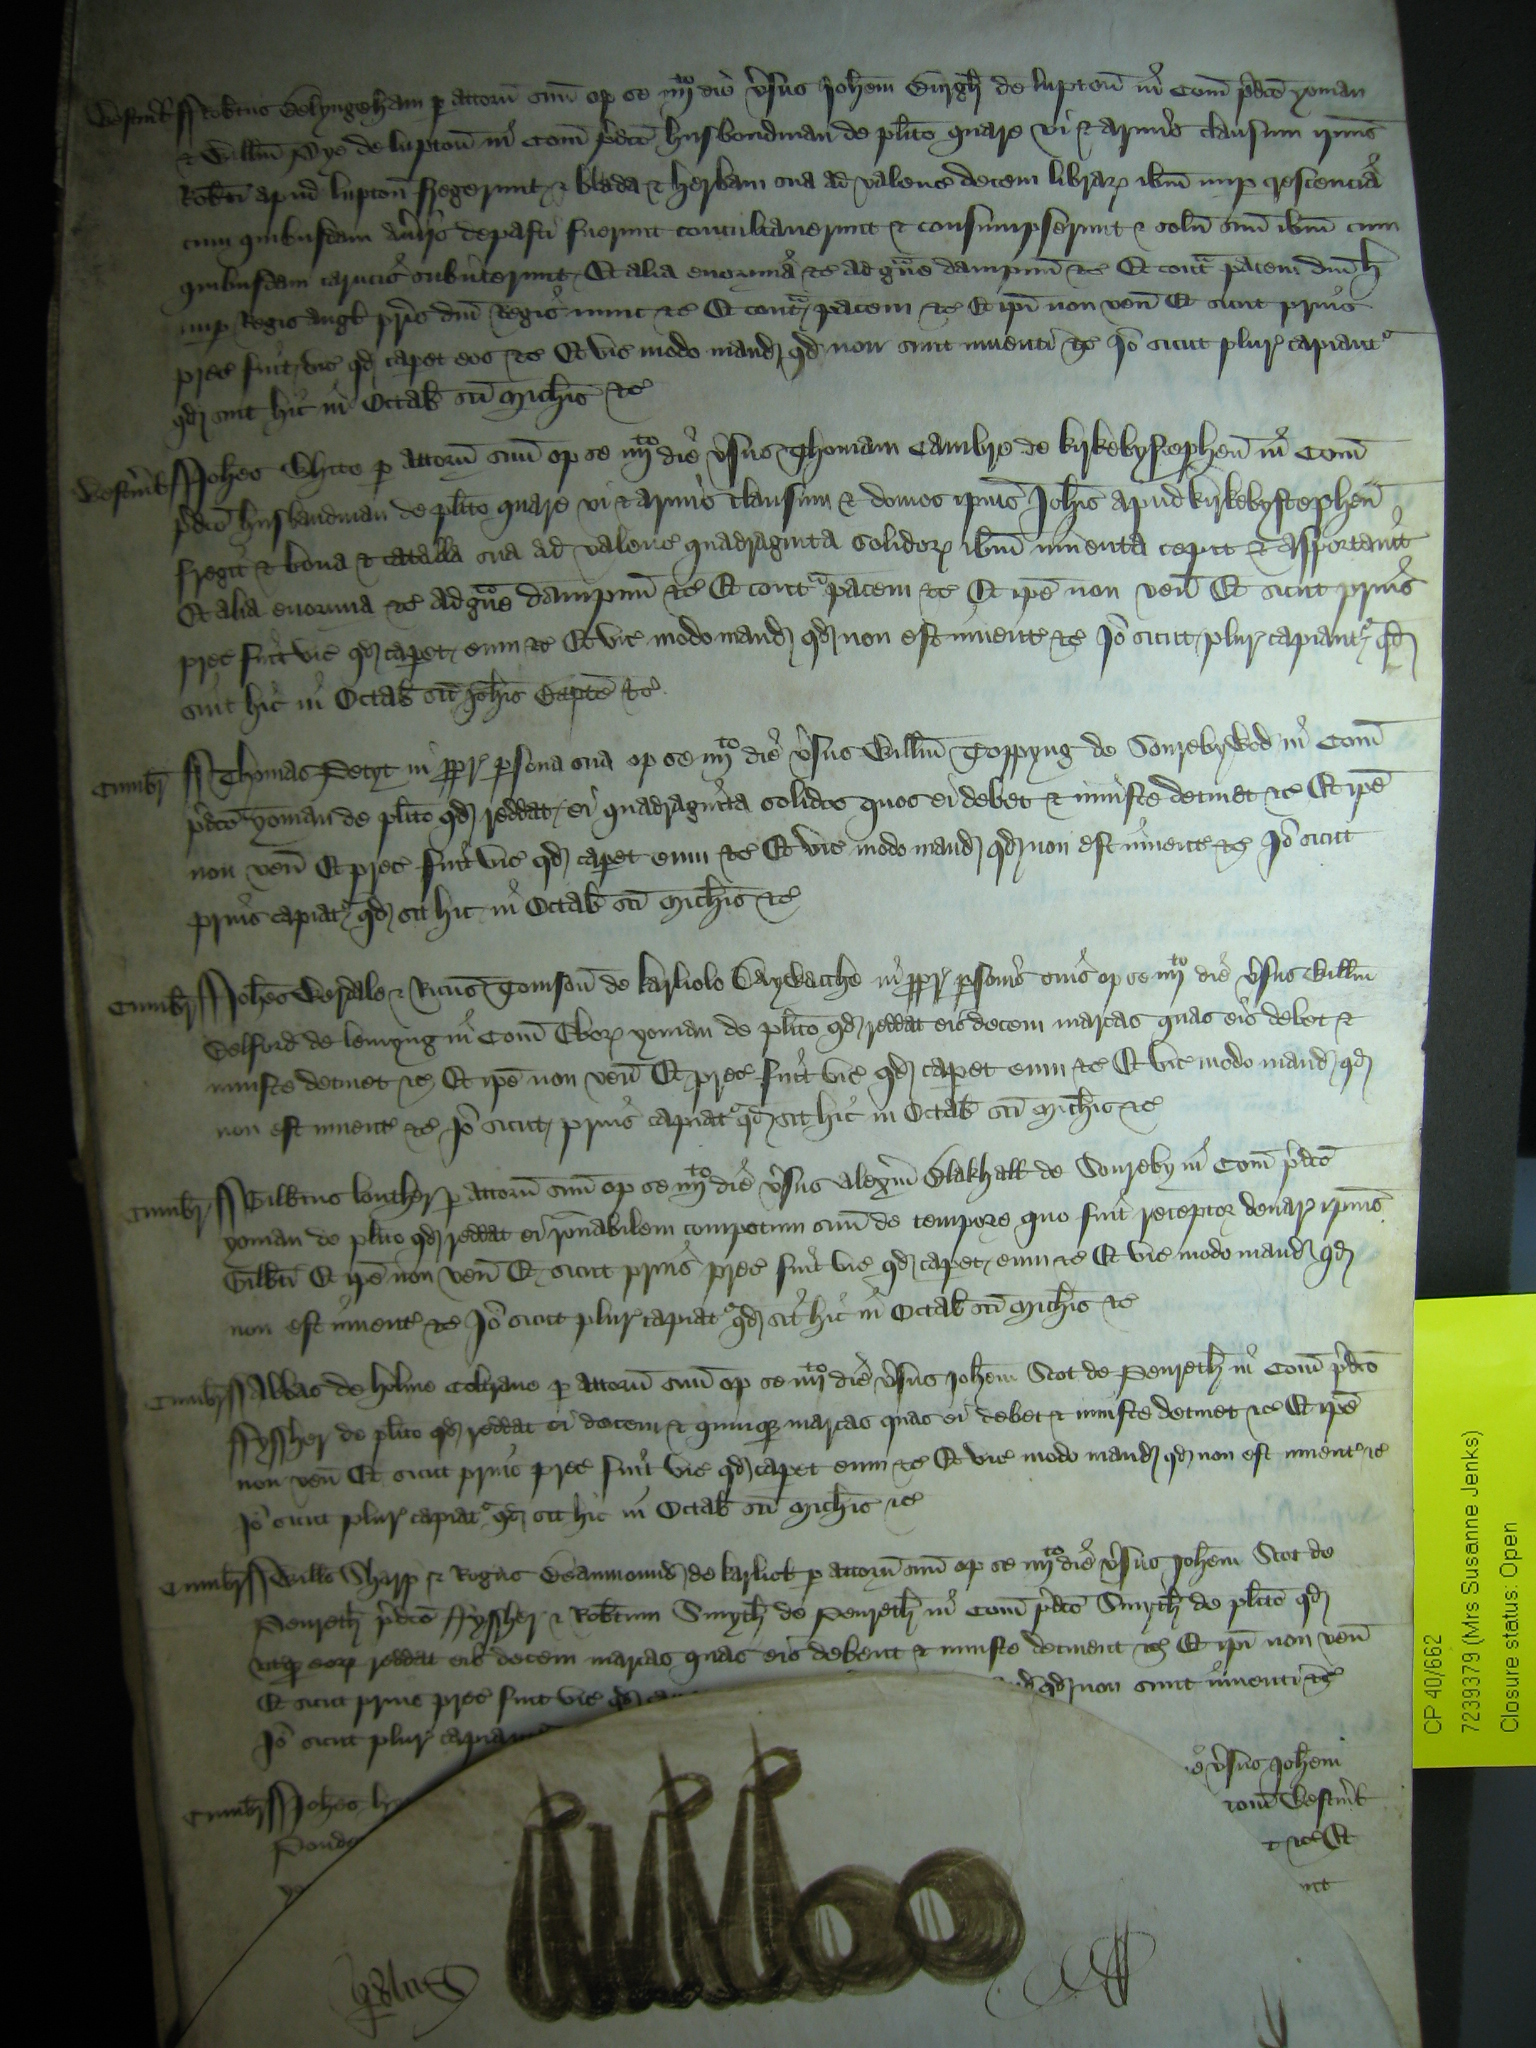 Westm̃l Rob̃tus Belyngeham p̱ attorñ suũ op se iiijto die v̓sus Joh̃em Burgh̃ de luptoñ in Com̃ p̓dc̃o yoman
& Willm̃ Pye de luptoñ in Com̃ p̓dc̃o husbondman de pl̃ito quare vi & armis clausum ip̃ius
Rob̃ti apud luptoñ fregerunt & blada & herbam sua ad valenc̃ decem librar̃ ib̃m nup̱ crescencia
cum quibusdam aũiis depasti fuerunt conculcaverunt & consumpserunt & solũ suũ ib̃m cum
quibusdam carucis subv̓terunt Et alia enormia &c ad g̃ve dampnũ &c Et cont̃ pacem dñi H
nup̱ Regis Angl̃ pr̃is dñi Regis nunc &c Et cont̃ pacem &c Et ip̃i non veñ Et sicut prius
prec̃ fuit vic̃ qd̃ capet eos &c Et vic̃ modo mand̃ qd̃ non sunt inventi &c Jõ sicut plur̃ capiant̃
qd̃ sint hic in Octab̃ sc̃i Mich̃is &c
Westm̃l Joh̃es White p̱ attorñ suũ op se iiijto die v̓sus Thomam Cambre de kirkebystepheñ in Com̃
p̓dc̃o husbandman de pl̃ito quare vi & armis clausum & domos ip̃ius Joh̃is apud kirkebystepheñ
fregit & bona & catalla sua ad valenc̃ quadraginta solidor̃ ib̃m inventa cepit & asportavit
Et alia enormia &c ad g̃ve dampnũ &c Et cont̃ pacem &c Et ip̃e non veñ Et sicut prius
prec̃ fuit vic̃ qd̃ capet eum &c Et vic̃ modo mand̃ qd̃ non est invent̃ &c Jõ sicut plur̃ capiant̃ qd̃
sint hic in Octab̃ sc̃i Joh̃is Bapt̃e &c
Cumbr̃ Thomas Petyt in pp̱r̃ p̱sona sua op se iiijto die v̓sus Willm̃ Toppyng de Sourebywod in Com̃
p̓dc̃o yoman de pl̃ito qd̃ reddat ei quadraginta solidos quos ei debet & iniuste detinet &c Et ip̃e
non veñ Et prec̃ fuit vic̃ qd̃ capet eum &c Et vic̃ modo mand̃ qd̃ non est invent̃ &c Jõ sicut
prius capiat̃ qd̃ sit hic in Octab̃ sc̃i Mich̃is &c
Cumbr̃ Joh̃es Werdale & Ric̃us Tomsoñ de karliolo Waywacche in pp̱r̃ p̱sonis suis op se iiijto die v̓sus Willm̃
Belford de lemyng in Com̃ Ebor̃ yoman de pl̃ito qd̃ reddat eis decem marcas quas eis debet &
iniuste detinet &c Et ip̃e non veñ Et prec̃ fuit vic̃ qd̃ capet eum &c Et vic̃ modo mand̃ qd̃
non est invent̃ &c Jõ sicut prius capiat̃ qd̃ sit hic in Octab̃ sc̃i Mich̃is &c
Cumbr̃ Gilb̃tus louther p̱ attorñ suũ op se iiijto die v̓sus Alex̃m Blakhall de Soureby in Com̃ p̓dc̃o
yoman de pl̃ito qd̃ reddat ei rõnabilem compotum suũ de tempore quo fuit receptor denar̃ ip̃ius
Gilb̃ti Et ip̃e non veñ Et sicut prius prec̃ fuit vic̃ qd̃ capet eum &c Et vic̃ modo mand̃ qd̃
non est invent̃ &c Jõ sicut plur̃ capiat̃ qd̃ sit hic in Octab̃ sc̃i Mich̃is &c
Cumbr̃ Abbas de holme Coltrane p̱ attorñ suũ op se iiijto die v̓sus Joh̃em Scot de Penreth̃ in Com̃ p̓dc̃o
ffyssher de pl̃ito qd̃ reddat ei decem & quinq̱ marcas quas ei debet & iniuste detinet &c Et ip̃e
non veñ Et sicut prius prec̃ fuit vic̃ qd̃ capet eum &c Et vic̃ modo mand̃ qd̃ non est invent̃ &c
Jõ sicut plur̃ capiat̃ qd̃ sit hic in Octab̃ sc̃i Mich̃is &c
Cumbr̃ Will̃s Sharp & Rog̃us Beaumound de karliol̃ p̱ attorñ suũ op se iiijto die v̓sus Joh̃em Scot de
Penreth̃ p̓dc̃o ffyssher & Rob̃tum Smyth̃ de Penreth̃ in Com̃ p̓dc̃o Smyth̃ de pl̃ito qd̃
ut̓q̱ eor̃ reddat eis decem marcas quas eis debent & iniuste detinent &c Et ip̃i non veñ
Et sicut prius prec̃ fuit vic̃ qd̃ qd̃ non sunt inventi &c
Jõ sicut plur̃
Cumbr̃ Joh̃es v̓sus Joh̃em
Com̃ Westm̃l
&c Et
CP 40/662
7239379 (Mrs Susanne Jenks)
Closure status: Open